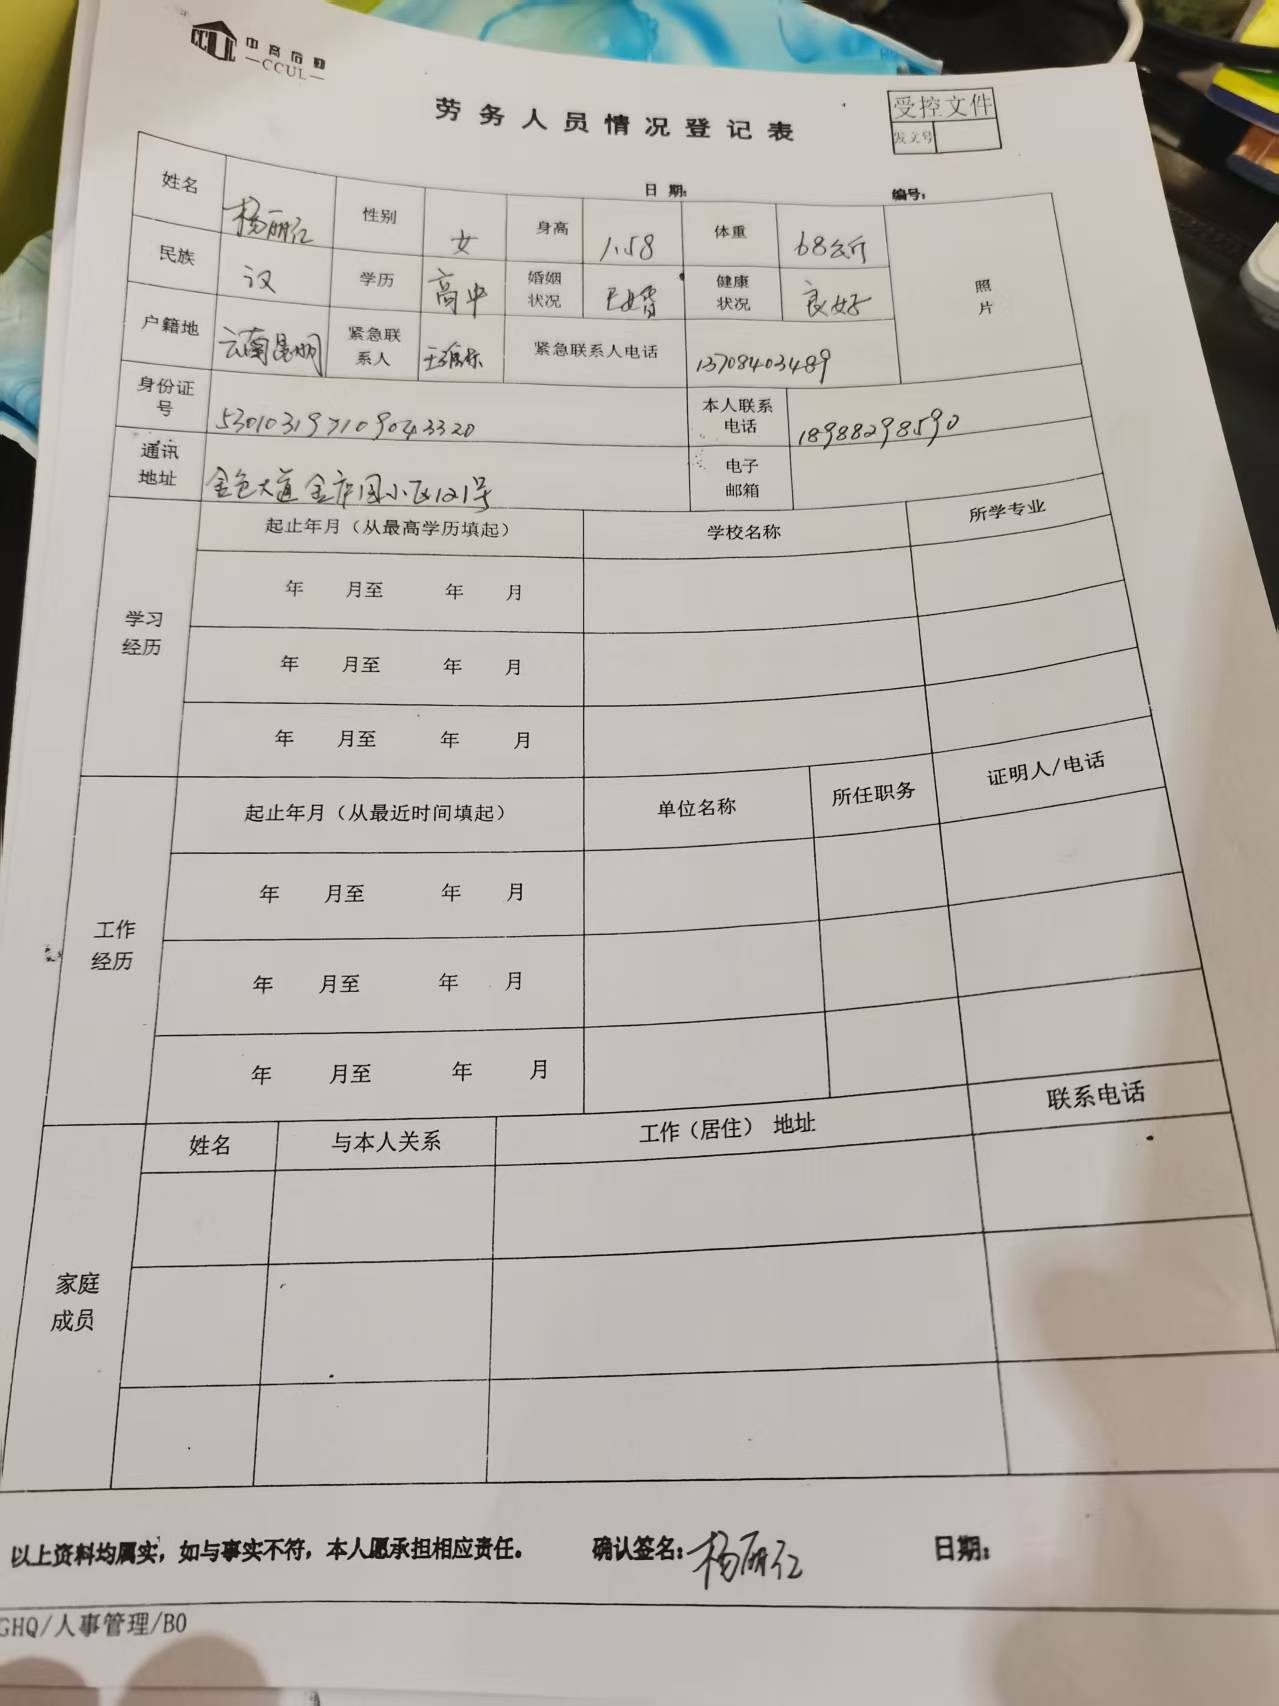 CCUL 中商后勤
—CCUL—
劳务人员情况登记表
受控文件
发文号
日期: 编号:
姓名 杨丽仁 性别 女 身高 1.58 体重 68公斤 照片
民族 汉 学历 高中 婚姻状况 已婚 健康状况 良好
户籍地 云南昆明 紧急联系人 紧急联系人电话 13708403489
身份证号 530103197109043320 本人联系电话 18988298590
通讯地址 金色大道金岸园小区121号 电子邮箱
学习经历 起止年月（从最高学历填起） 学校名称 所学专业
年 月至 年 月
年 月至 年 月
年 月至 年 月
工作经历 起止年月（从最近时间填起） 单位名称 所任职务 证明人/电话
年 月至 年 月
年 月至 年 月
年 月至 年 月
家庭成员 姓名 与本人关系 工作（居住） 地址 联系电话
以上资料均属实，如与事实不符，本人愿承担相应责任。 确认签名: 杨丽仁 日期:
GHQ/人事管理/B0